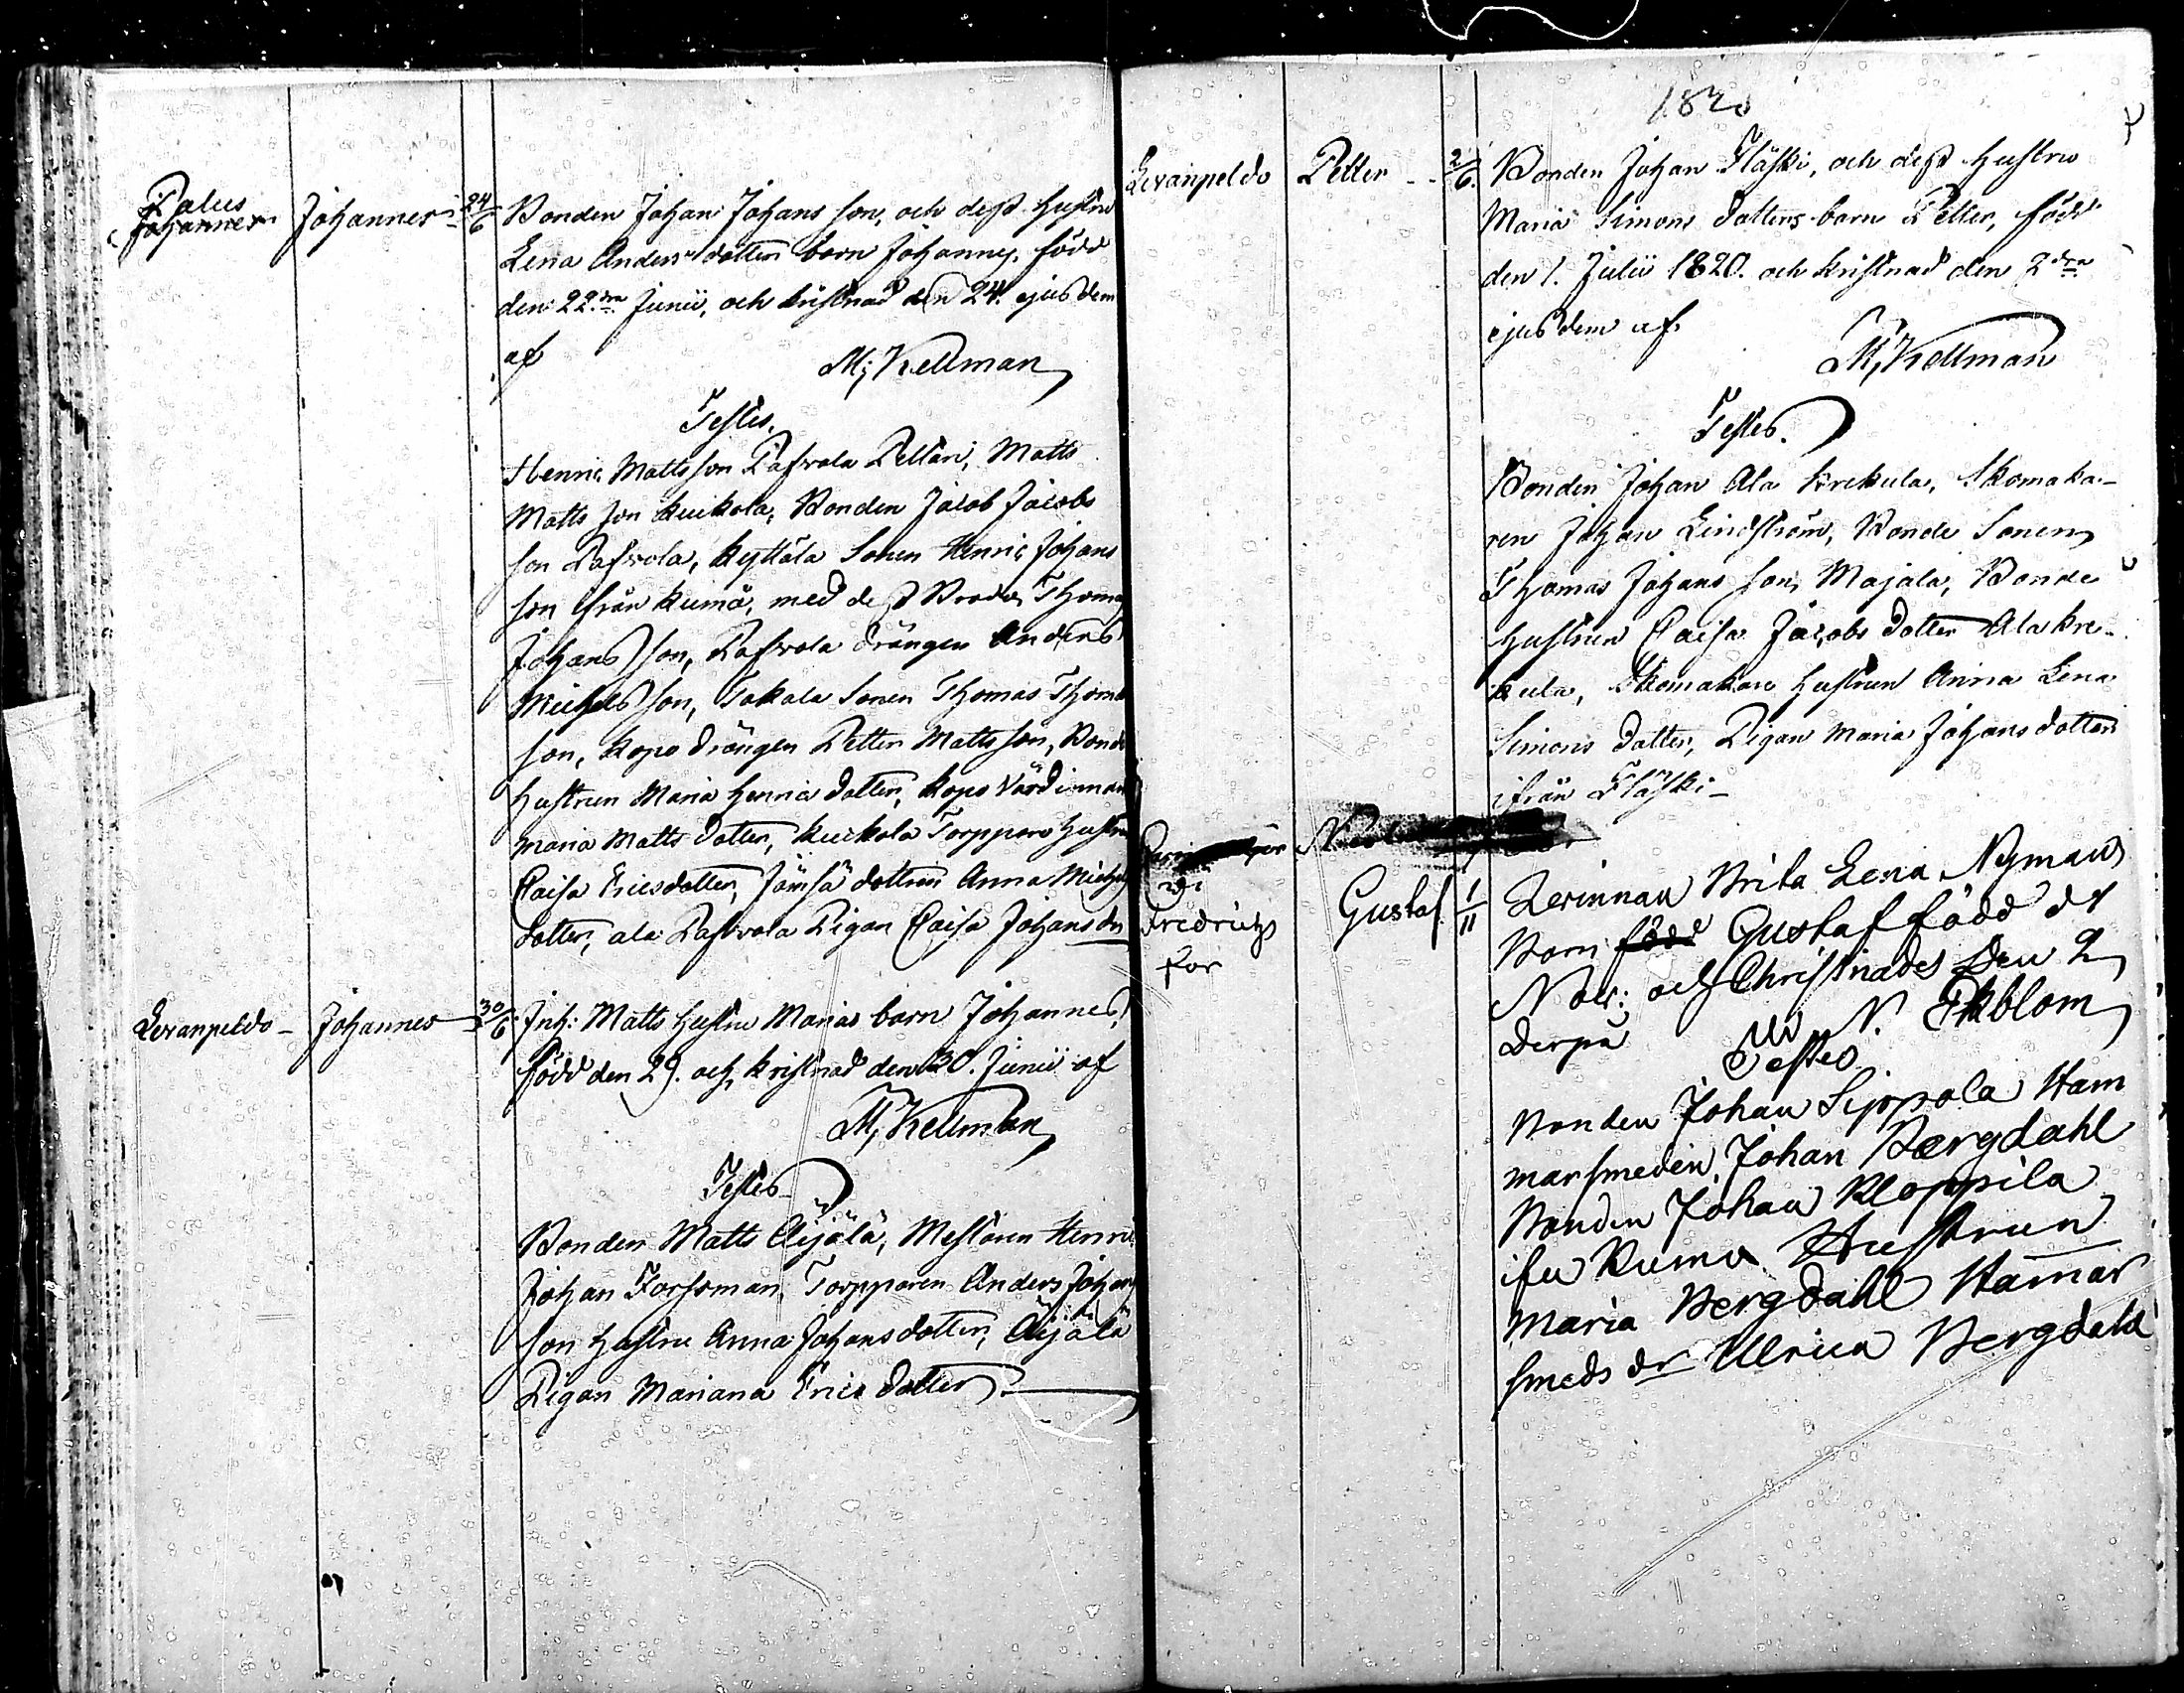 Palus
Johannes
Johannes
24/6
Bonden Johan Johans son, och dess Hustru
Lena Anders dotters barn Johannes, född
den 22dra Junii, och kristnad den 24. ejusdem
af
M; Kellman
Testes.
Henric Mattsson Pafvola Pettari, Matts
Matts son Kuckola, Bonden Jacob Jacobs
son Pafvola, Kyttälä Sonen Henric Johans
son från Kumo, med dess Broder Thomas
Johans son, Pafvola drängen Anders
Michels son, Takala Sonen Thomas Thomas
son, Kopo drängen Petter Matts son, Bonde
Hustrun Maria Henrics dotter, Kopo Värdinnan
Maria Matts dotter, Kuckola Torppare Hustru
Caisa Ericsdotter, Jämsä dottren Anna Michels
dotter, ala Pafvola Pigan Caisa Johans dr
Levanpeldo -
Johannes
30/6
Inh: Matts Hustru Marias barn Johannes,
född den 29. och kristnad den 30. Junii af
M; Kellman
Testes
Bonden Matts Äijälä, Mestaren Henric
Johan Forssman, Torpparen Anders Johans
son Hustru Anna Johans dotter, Äijälä
Pigan Mariana Erics dotter
1820
Levanpeldo
Petter - -
2/6.
Bonden Johan Fläski, och dess Hustru
Maria Simons dotters barn Petter, född
den 1. Julii 1820. och kristnad den 2dra
ejusdem af
M; Kellman
Testes.
Bonden Johan Ala Krekula, Skomaka-
ren Johan Lindström, Bonde Sonen
Thomas Johans son Majala, Bonde
Hustrun Caisa Jacobs dotter Ala Kre-
kula, Skomakare Hustrun Anna Lena
Simons dotter, Pigan Maria Johans dotter
ifrån Fläski -
Fredrichs
for
Gustaf
1/11
Brita Lena Nyman
Barn född Gustaf född d 1
Nov: och Christnades den 2
derpå
av N. Ekblom
Testes
Bonden Johan Sippola Ham
marsmeden Johan Bergdahl
Bonden Johan Kloppila
Kumo Hustrun
Maria Bergdahl Hamar
smeds dr Ulrica Bergdahl